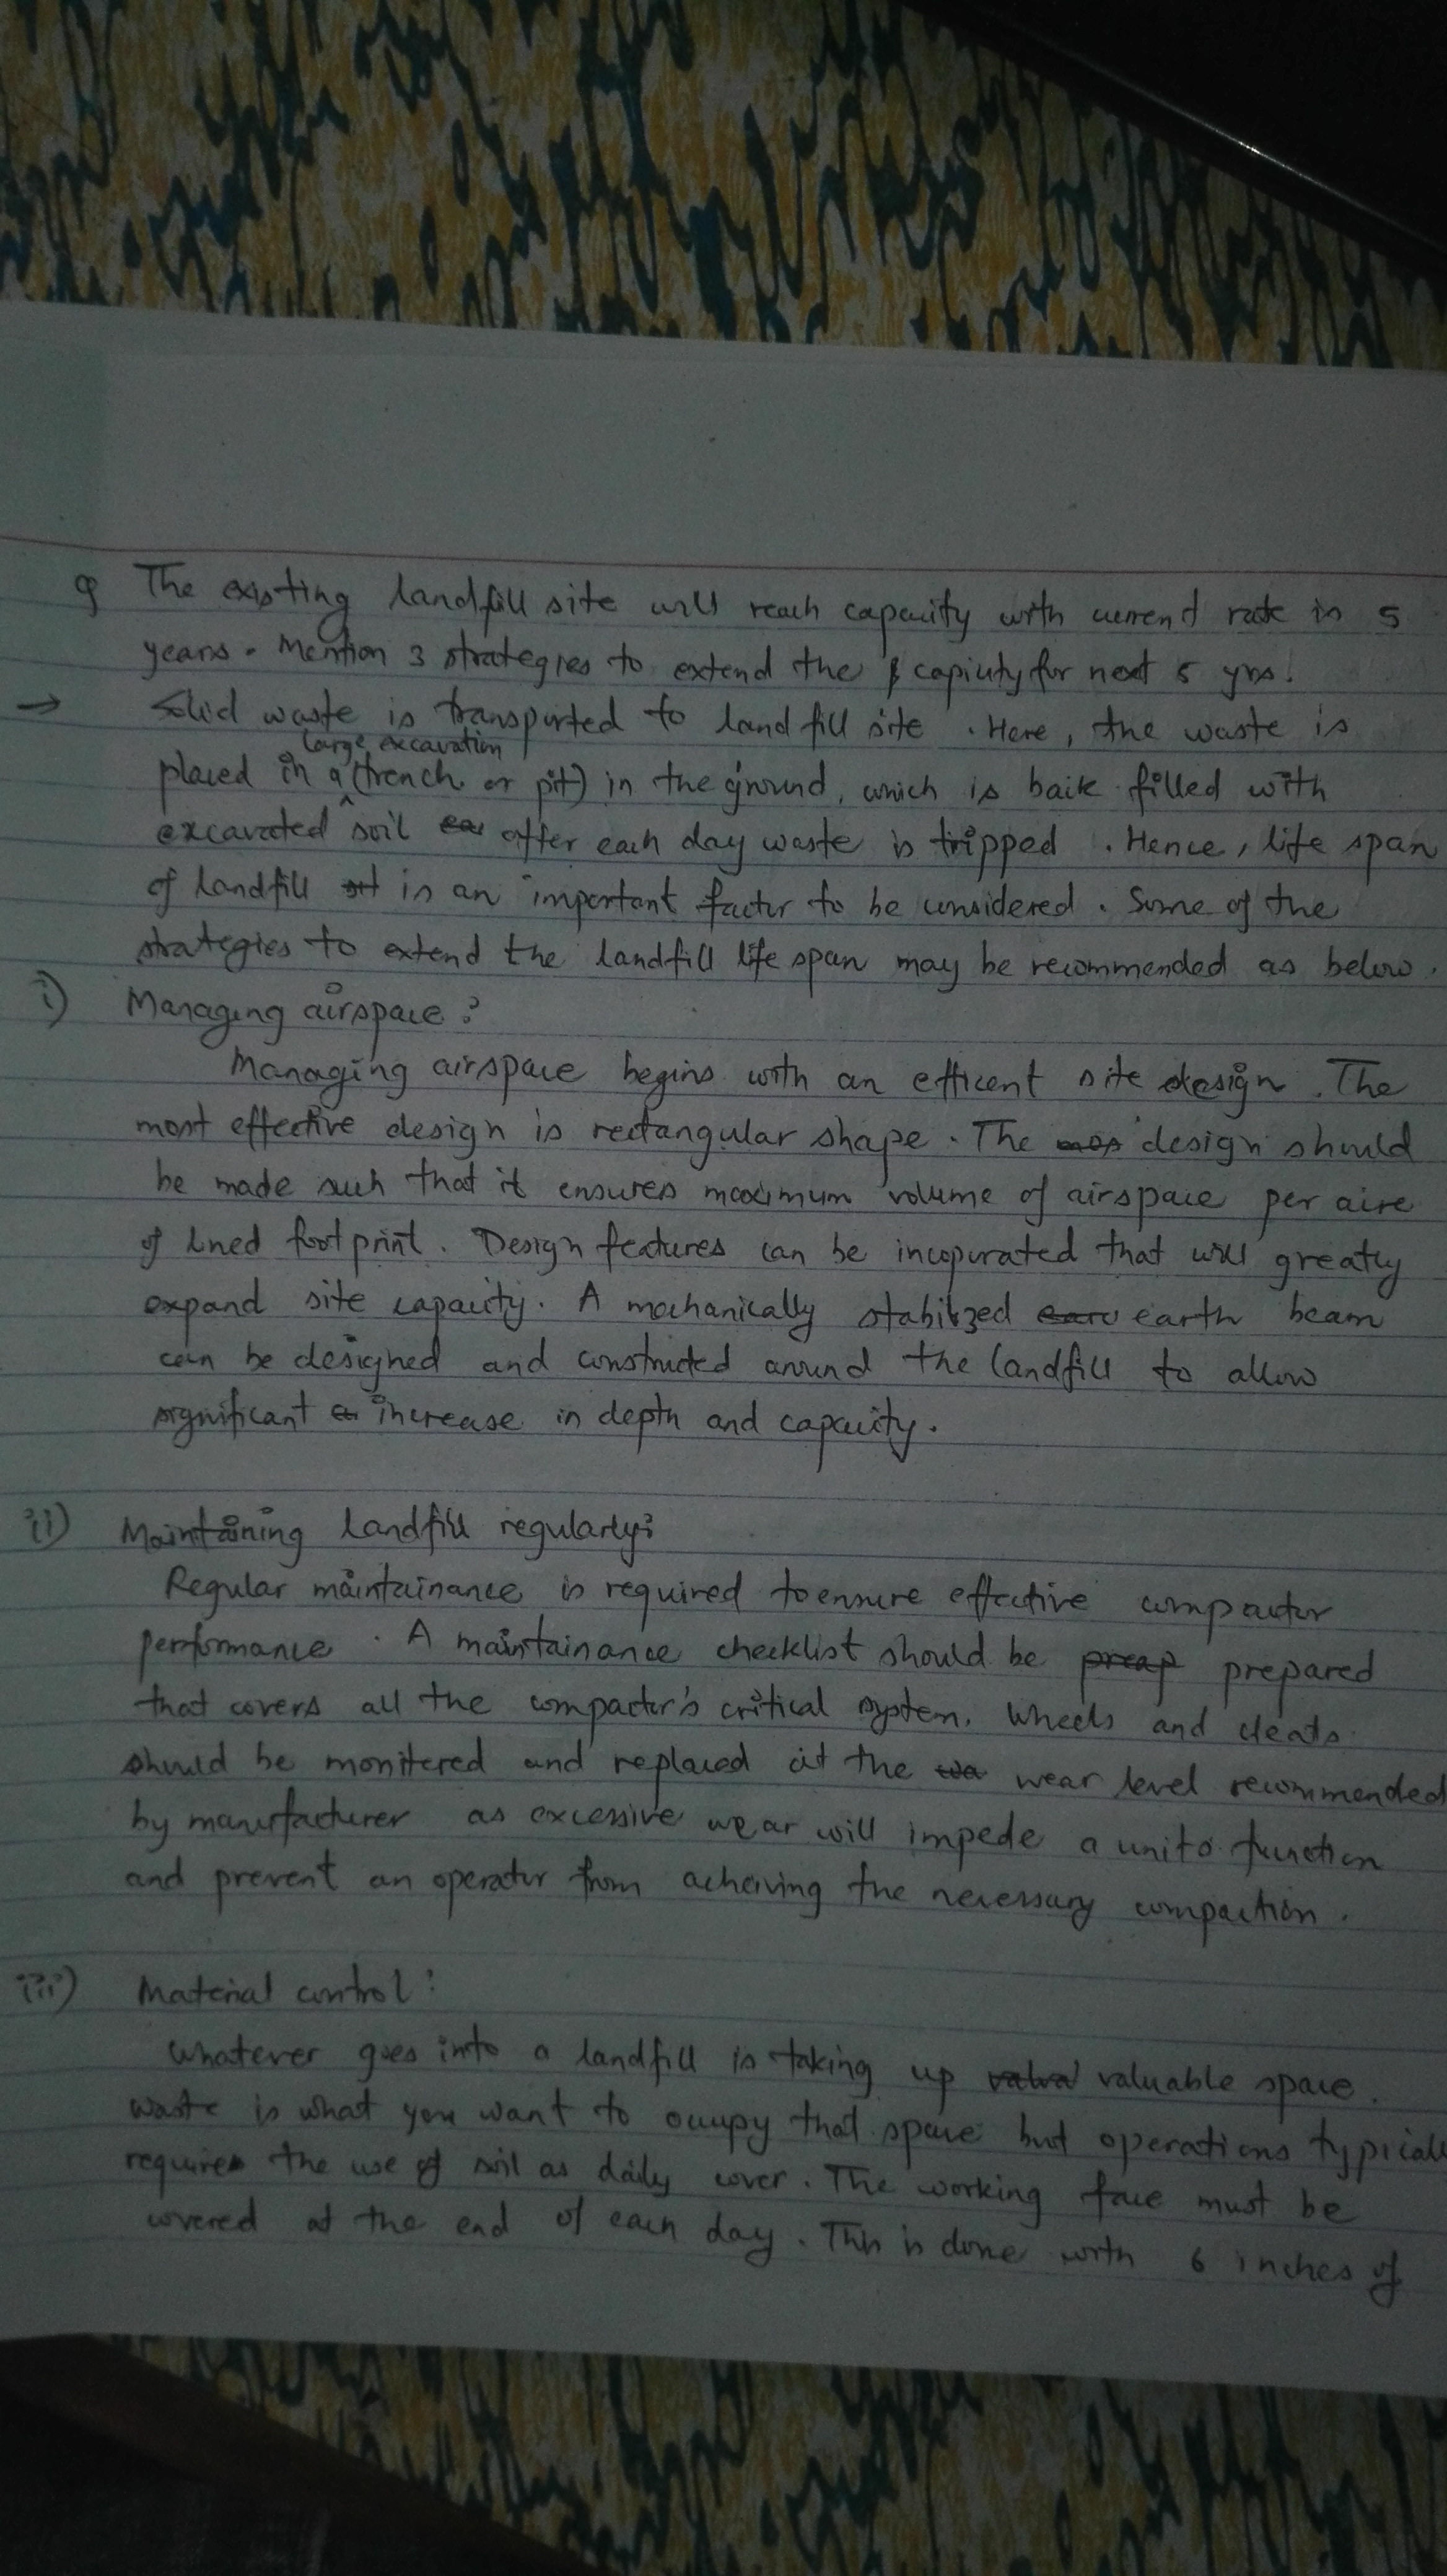 Q The existing landfill site will reach capacity with current rate in 5
years. Mention 3 strategies to extend the capicity for next 5 yrs.
→ Solid waste is transported to landfill site. Here, the waste is
large excavation
placed in a (trench or pit) in the ground, which is back filled with
excavated soil after each day waste is tripped. Hence, life span
of landfill is an important factor to be considered. Some of the
strategies to extend the landfill life span may be recommended as below.
i) Managing airspace:
Managing airspace begins with an efficent site design. The
most effective design is rectangular shape. The design should
be made such that it ensures maximum volume of airspace per acre
of lined footprint. Design features can be incoporated that will greatly
expand site capacity. A mechanically stabilized earth beam
can be designed and constructed around the landfill to allow
significant increase in depth and capacity.
ii) Maintaining landfill regularly:
Regular maintainance is required to ensure effective compactor
performance. A maintainance checklist should be prepared
that covers all the compactor's critical system. Wheels and cleats
should be monitered and replaced at the wear level recommended
by manufacturer as excessive wear will impede a unit's function
and prevent an operator from acheiving the necessary compaction.
iii) Material control:
Whatever goes into a landfill is taking up valuable space.
Waste is what you want to occupy that space but operations typicall
requires the use of soil as daily cover. The working face must be
covered at the end of each day. This is done with 6 inches of